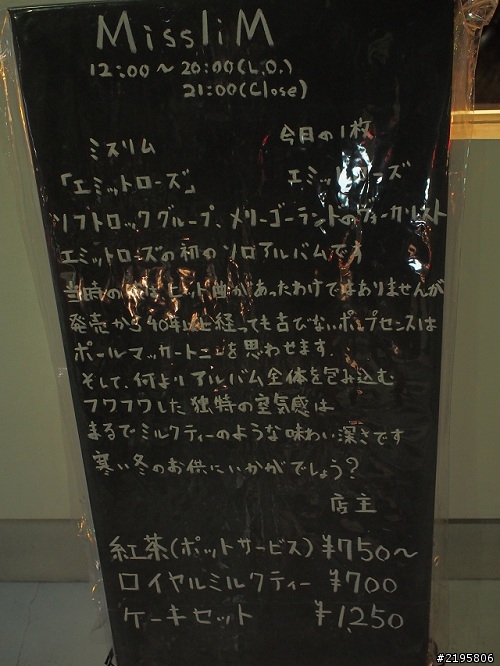 MissliM
12:00～20:00(L.O.)
21:00(Close)
今月の1枚
ミスリム
エミットローズ
「エミットローズ」
ソフトロックグループ、メリーゴーラントのヴォーカリスト
エミットローズの初のソロアルバムです
当時の ヒット曲があったわけではありませんが
発売から40年以上経っても古びないポップセンスは
ポールマッカートニーを思わせます.
そして、何よりアルバム全体を包み込む
フワフワした独特の空気感は
まるでミルクティーのような味わい深さです
寒い冬のお供にいかがでしょう？
店主
紅茶(ポットサービス) ¥750～
ロイヤルミルクティー ¥700
ケーキセット ¥1,250
#2195806